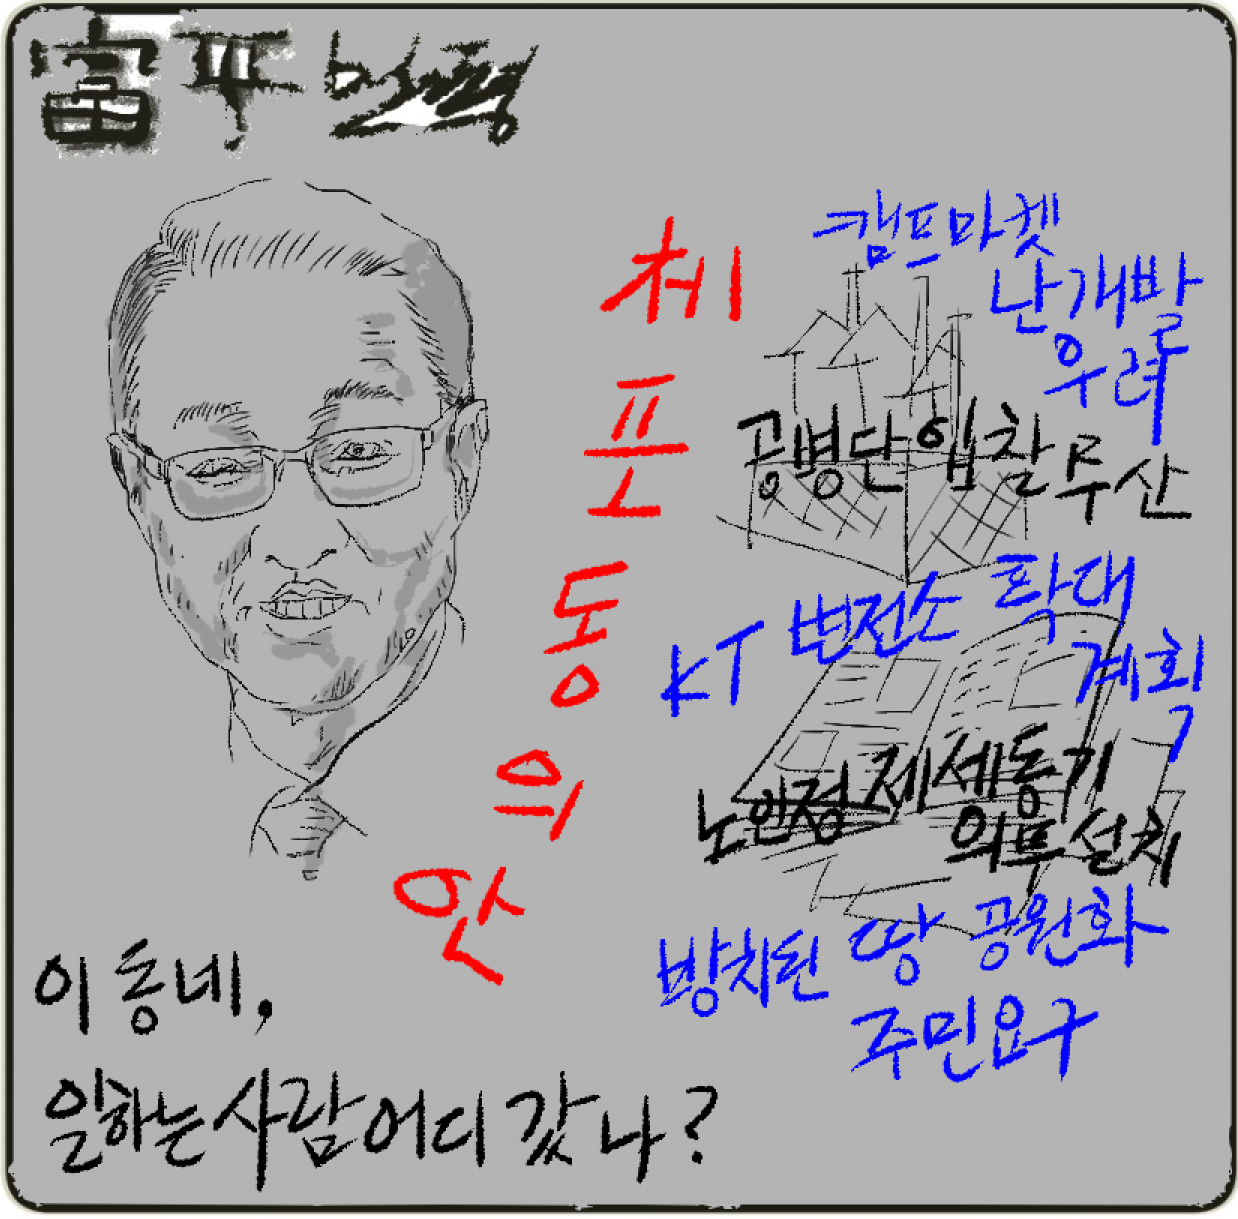 富平
체포동의안
캠프마켓
난개발
우려
공병단 입찰 무산
KT 변전소 확대
계획
노인정 제세동기
의무 설치
방치된 땅 공원화
주민요구
이 동네,
일하는 사람 어디 갔나?